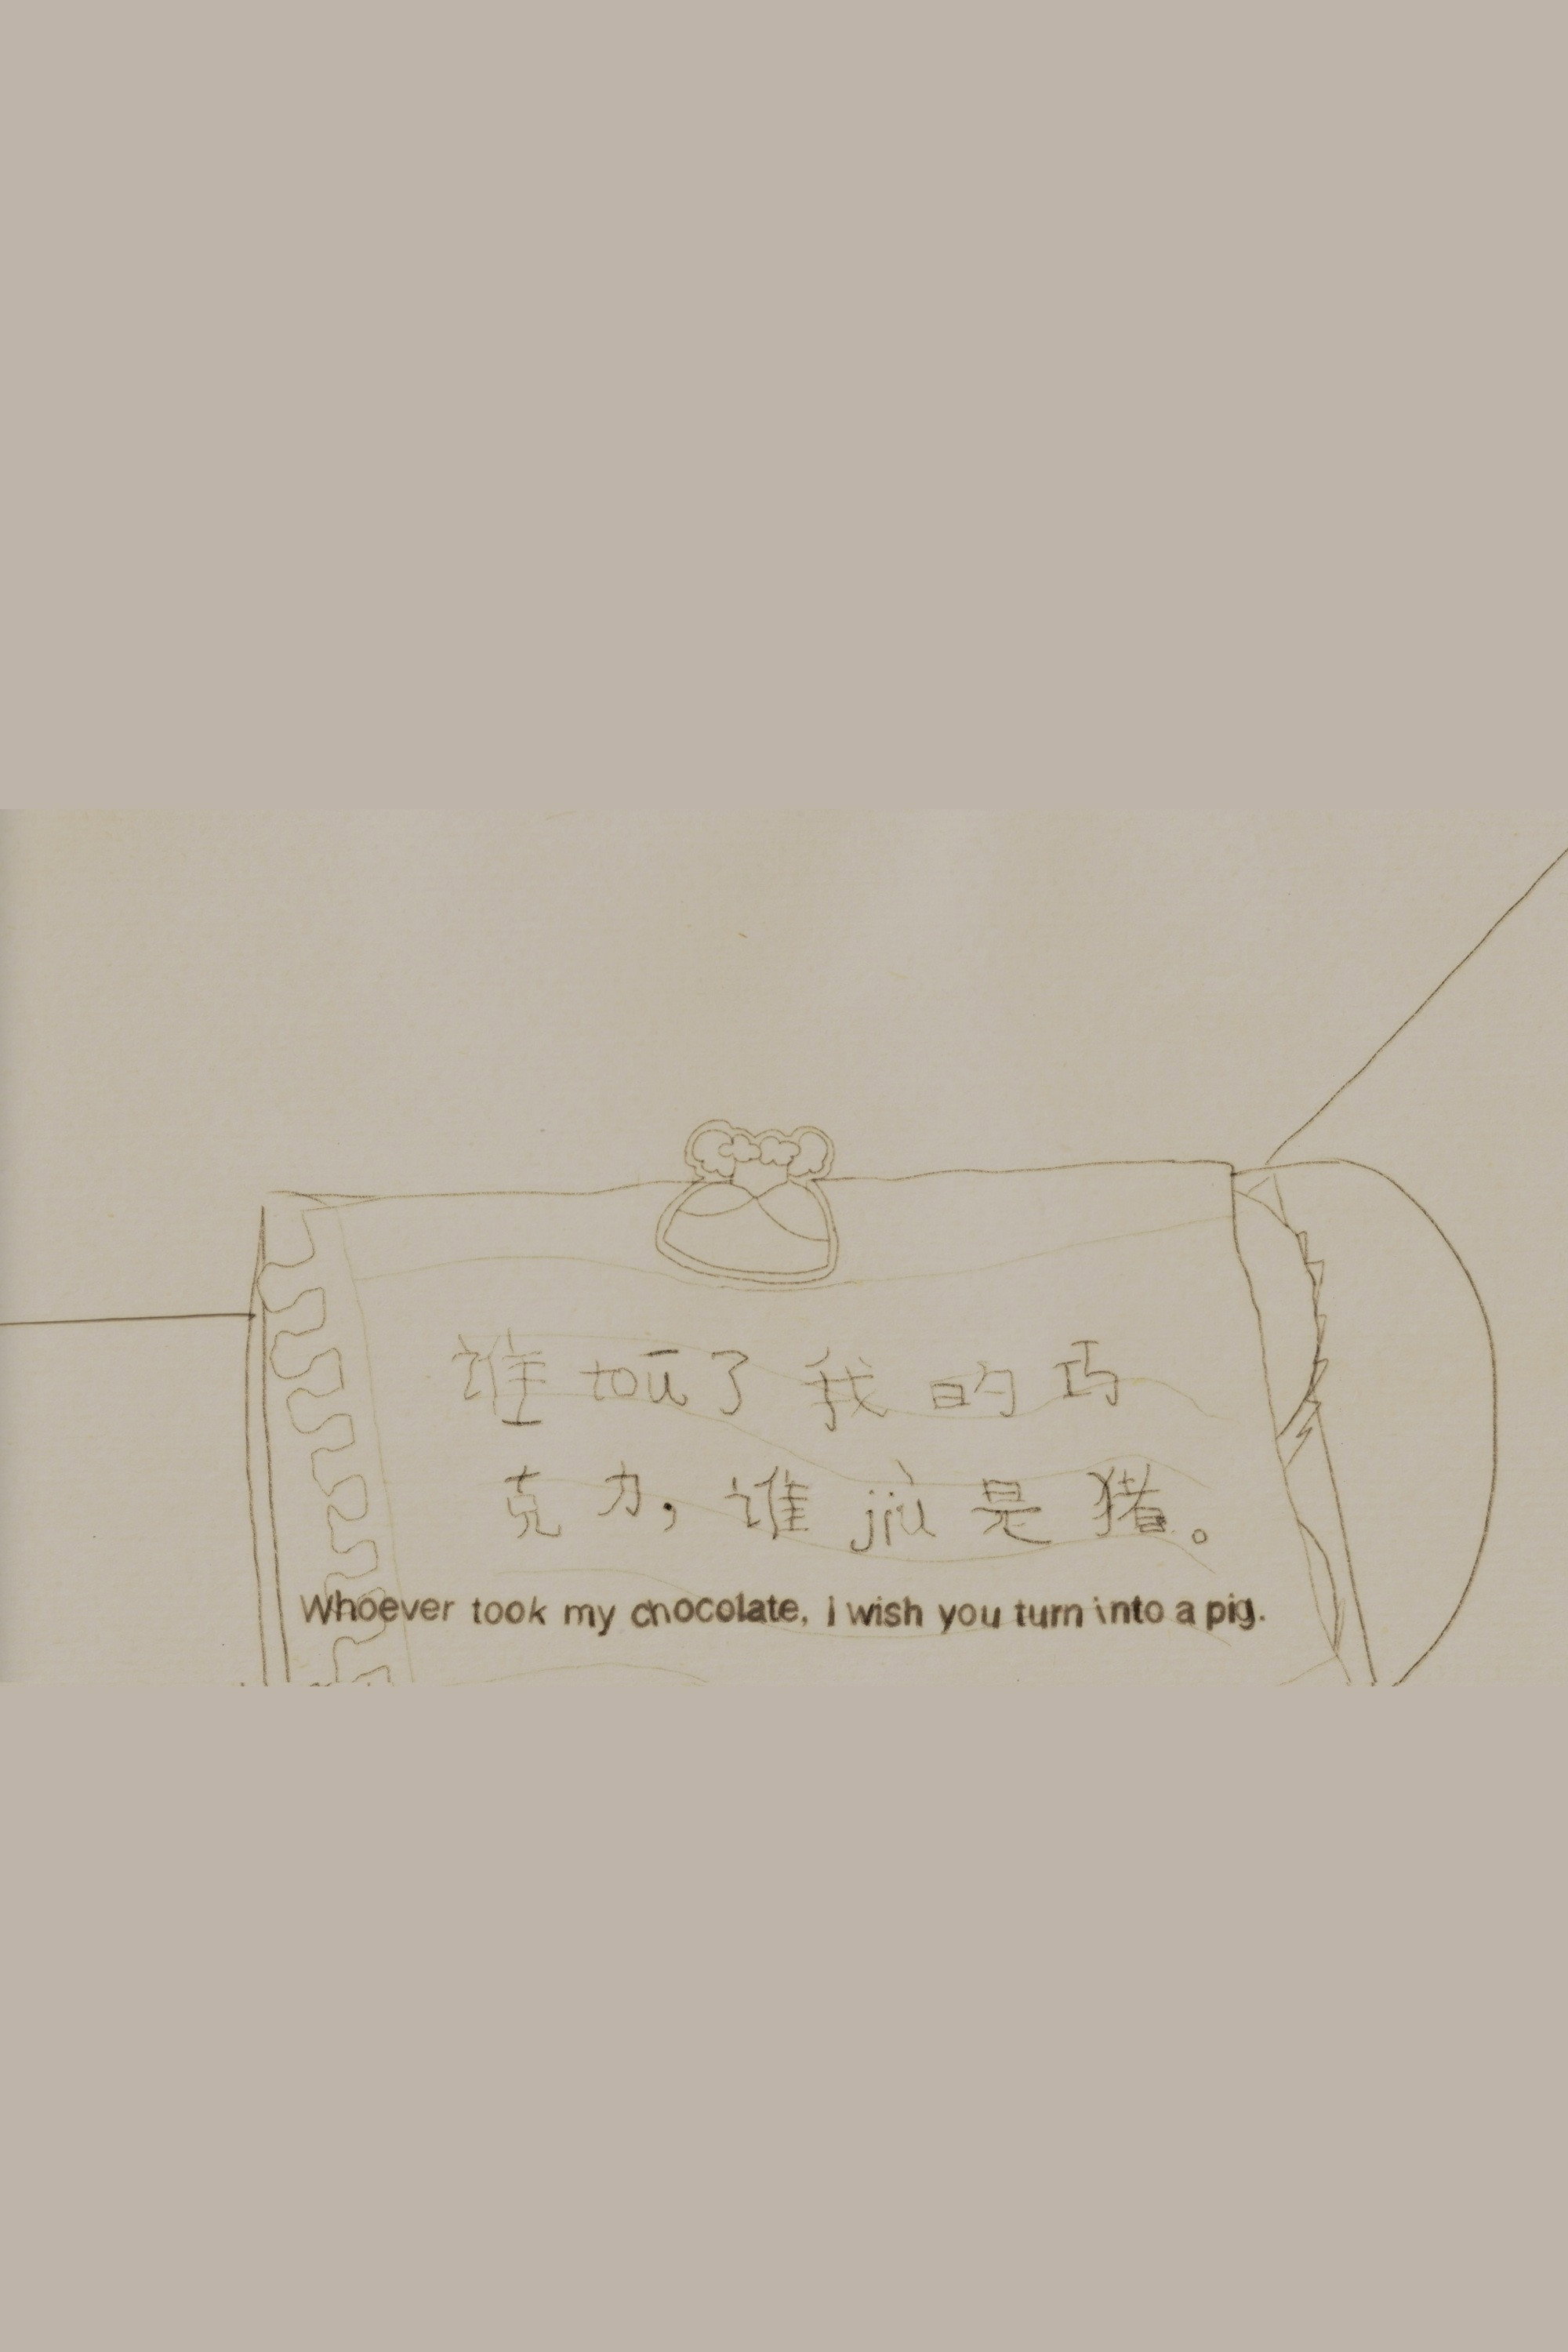 谁 toū 了 我 的 巧
克 力, 谁 jiù 是 猪。
Whoever took my chocolate, I wish you turn into a pig.